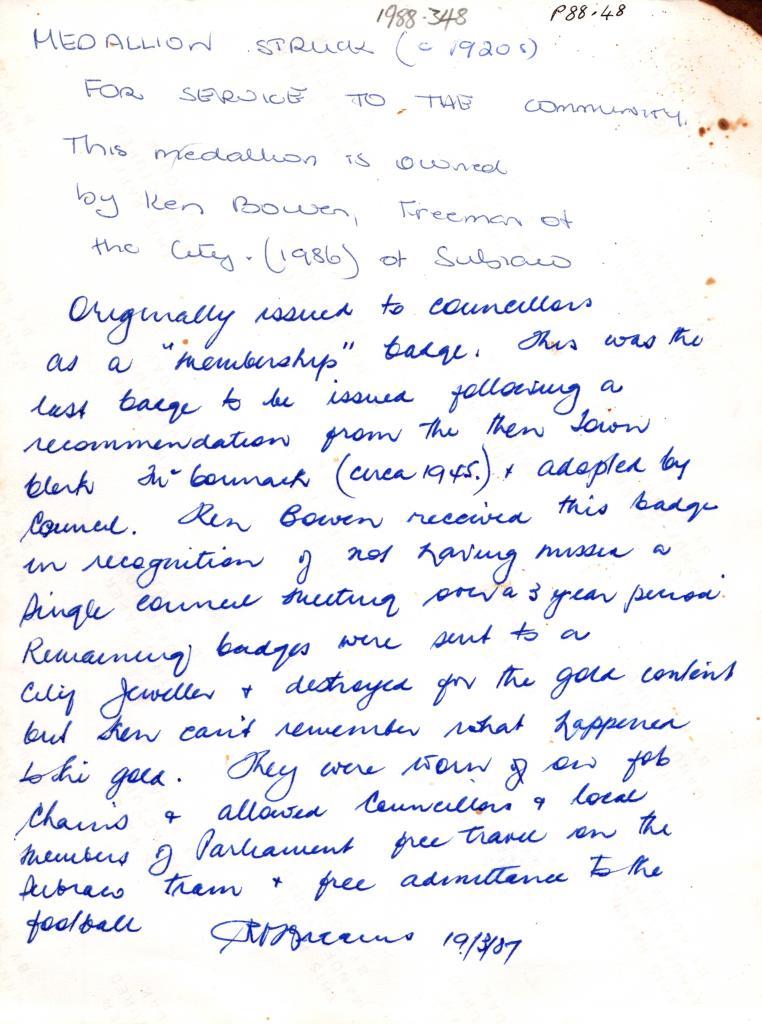 1988-348 P88.48
MEDALLION STRUCK (c 1920s)
FOR SERVICE TO THE COMMUNITY.
This medallion is owned
by Ken Bowen, Freeman of
the City. (1986) of Subiaco
Originally issued to councillors
as a "membership" badge. This was the
last badge to be issued following a
recommendation from the then Town
Clerk Mr Cormack (circa 1945.) + adopted by
Council. Ken Bowen received this badge
in recognition of not having missed a
single council meeting over a 3 year period.
Remaining badges were sent to a
City Jeweller + destroyed for the gold content
but Ken can't remember what happened
to the gold. They were worn on fob
chains + allowed Councillors + local
members of Parliament free travel on the
Subiaco tram + free admittance to the
football 19/3/87